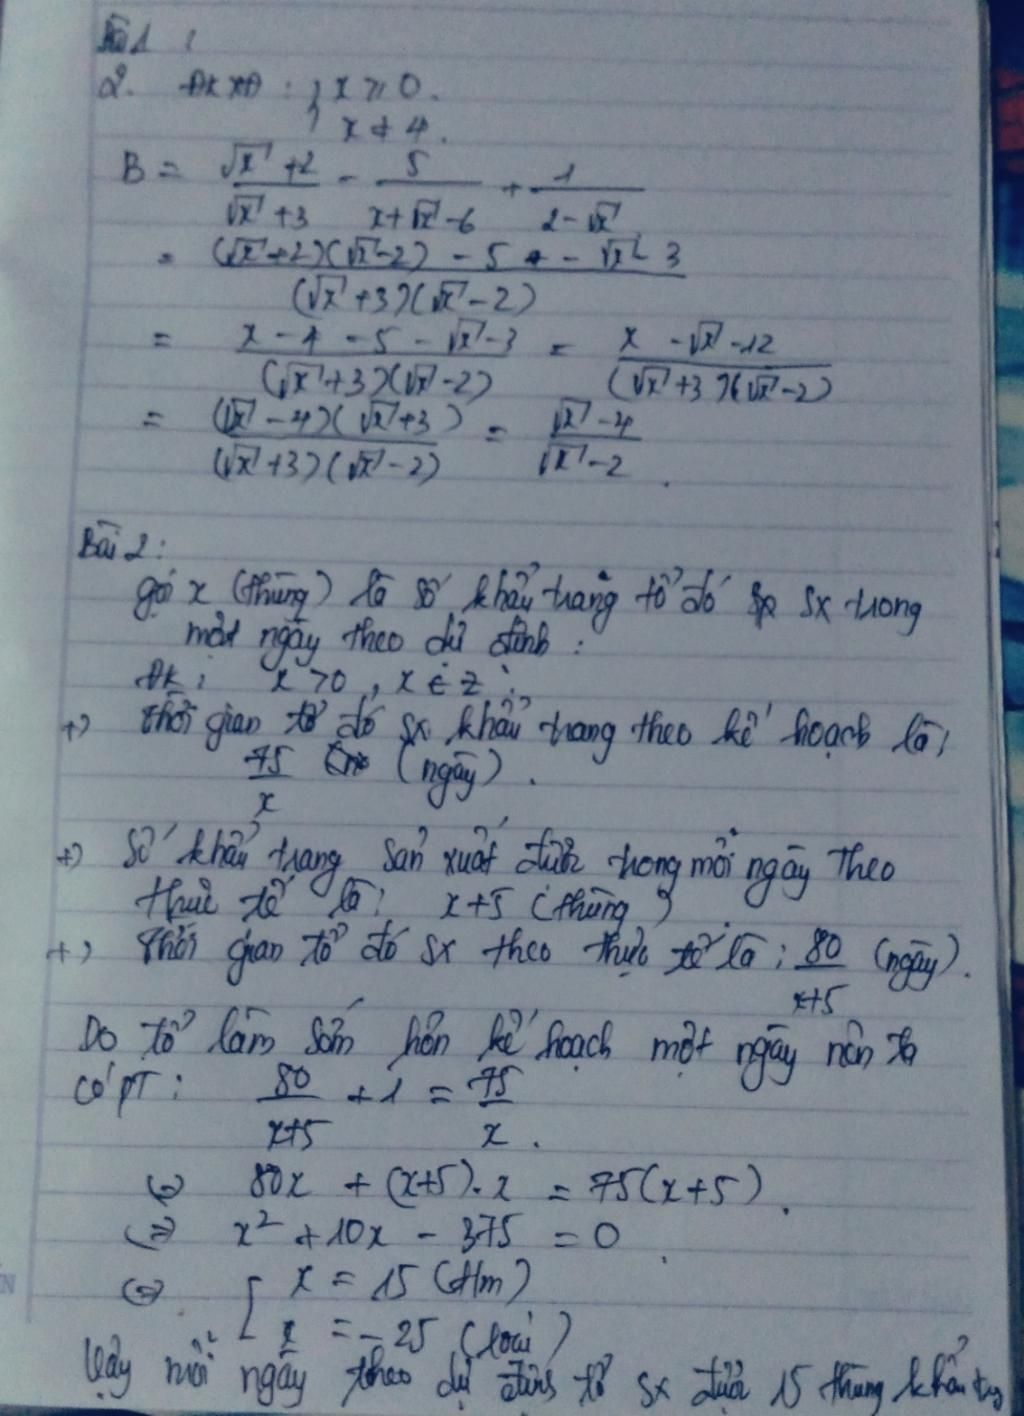 Bài 1 :
2. ĐKXĐ : { x ≥ 0.
x ≠ 4.
B = (√x + 2)/(√x + 3) - 5/(x + √x - 6) + 1/(2 - √x)
= ((√x + 2)(√x - 2) - 5 - √x - 3)/((√x + 3)(√x - 2))
= (x - 4 - 5 - √x - 3)/((√x + 3)(√x - 2)) = (x - √x - 12)/((√x + 3)(√x - 2))
= ((√x - 4)(√x + 3))/((√x + 3)(√x - 2)) = (√x - 4)/(√x - 2).
Bài 2 :
gọi x (thùng) là số khẩu trang tổ đó sx trong
một ngày theo dự định :
ĐK : x > 0 , x ∈ Z ;
+) thời gian tổ đó sx khẩu trang theo kế hoạch là :
75/x (ngày).
+) Số khẩu trang sản xuất được trong mỗi ngày theo
thực tế là : x+5 (thùng)
+) thời gian tổ đó sx theo thực tế là : 80/(x+5) (ngày).
Do tổ làm sớm hơn kế hoạch một ngày nên ta
có PT : 80/(x+5) + 1 = 75/x.
(=) 80x + (x+5).x = 75(x+5).
(=) x² + 10x - 375 = 0
(=) [ x = 15 (tm)
x = -25 (loại)
Vậy mỗi ngày theo dự định tổ sx được 15 thùng khẩu